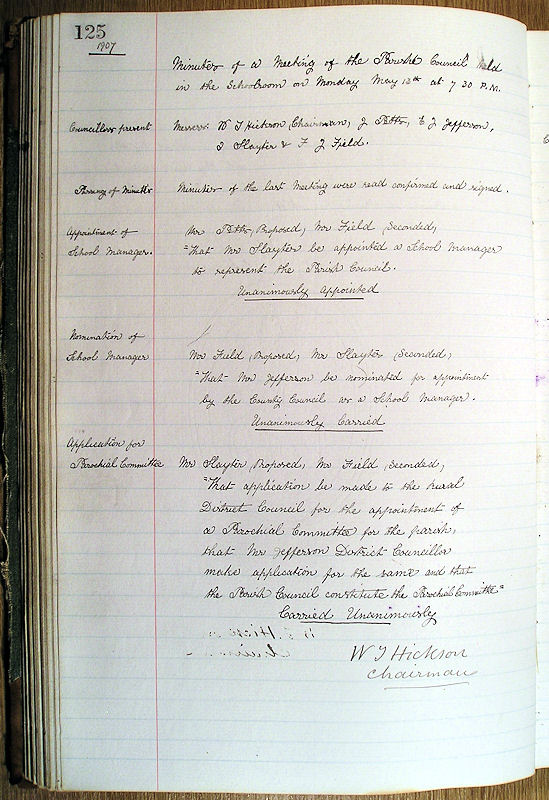 125
1907
Minutes of a Meeting of the Parish Council held
in the Schoolroom on Monday May 13th at 7 30 P.M.
Councillors present
Messrs W J Hickson (Chairman), J Potts, E J Jefferson,
J Slayter & F J Field.
Passing of Minutes
Minutes of the last Meeting were read confirmed and signed.
Appointment of
School Manager.
Mr Potts, Proposed, Mr Field Seconded,
"That Mr Slayter be appointed a School Manager
to represent the Parish Council.
Unanimously Appointed
Nomination of
School Manager
Mr Field, Proposed, Mr Slayter, Seconded,
"That Mr Jefferson be nominated for appointment
by the County Council as a School Manager.
Unanimously Carried
Application for
Parochial Committee
Mr Slayter, Proposed, Mr Field, Seconded,
"That application be made to the Rural
District Council for the appointment of
a Parochial Committee for the parish,
that Mr Jefferson District Councillor
make application for the same and that
the Parish Council constitute the Parochial Committee"
Carried Unanimously
W J Hickson
Chairman